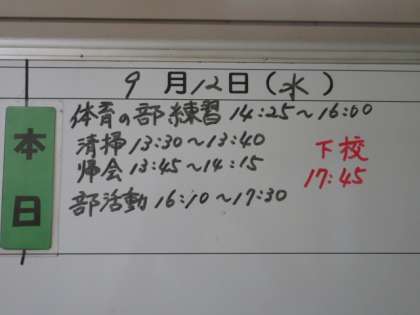 9月12日(水)
本日
体育の部練習 14:25～16:00
清掃 13:30～13:40
帰会 13:45～14:15
部活動 16:10～17:30
下校
17:45